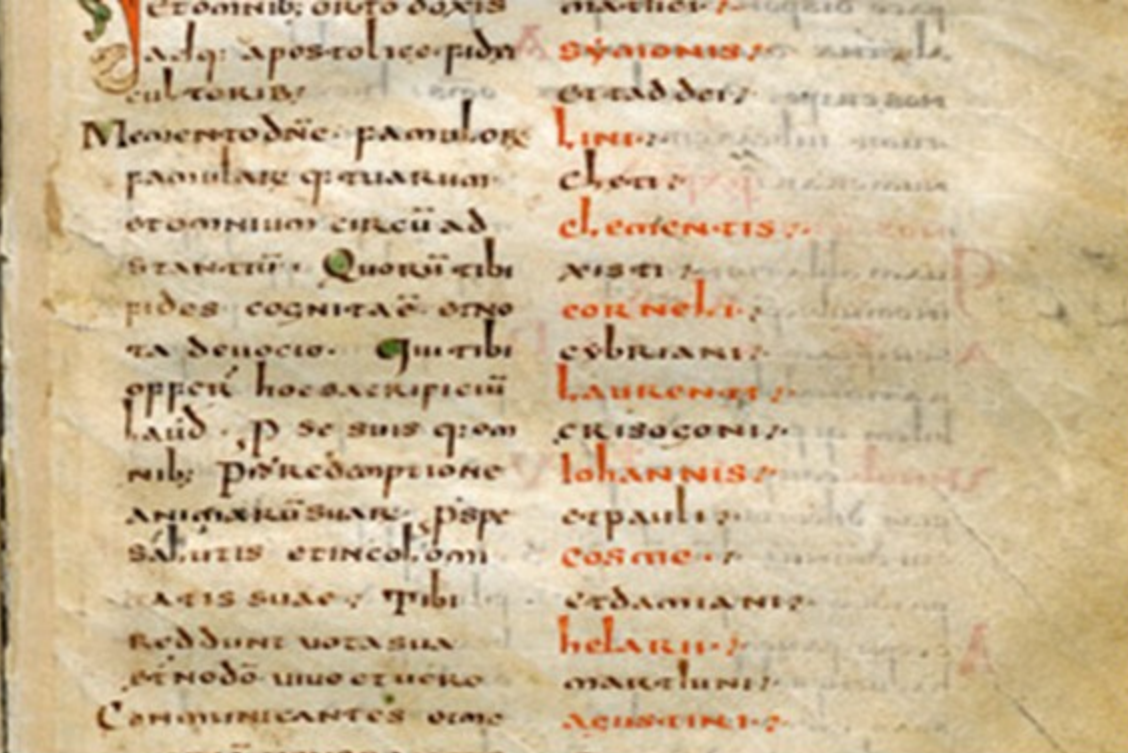 et omnib; orto doxis
adq: apostolice fidei
cultorib;
Memento dn̄e famulor
famular q: tuarum
et omnium circū ad
stantiū Quorū tibi
fides cognita ē et no
ta deuocio. Qui tibi
offer hoc sacrificiū
laud. p se suis q: om
nib; p redemptione
animarū suar p spe
salutis et incolomi
tatis suae; Tibi
reddunt uota sua
et uiuo et uero
Communicantes et me
mathei
symonis
et taddei
Lini
cleti
clementis
xisti
corneli
cybriani
Laurenti
crisogoni
Iohannis
et pauli
cosme
et damiani
helarii
martiuni
agustini